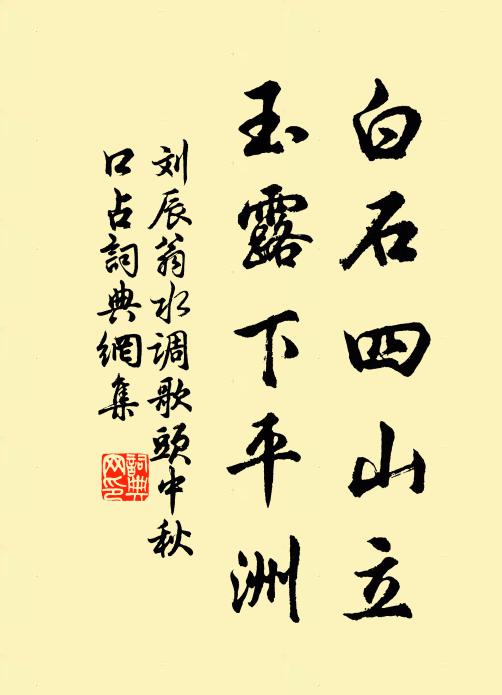 白石四山立
玉露下平洲
刘辰翁水调歌頭中秋
口占詞典網集
詞典網印